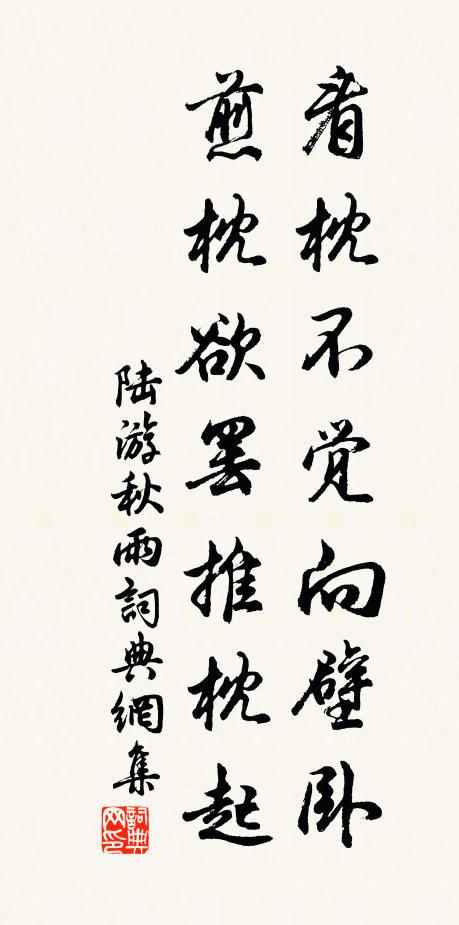 着枕不觉向壁卧
煎枕欲罢推枕起
陆游秋雨詞典網集
詞典
网印